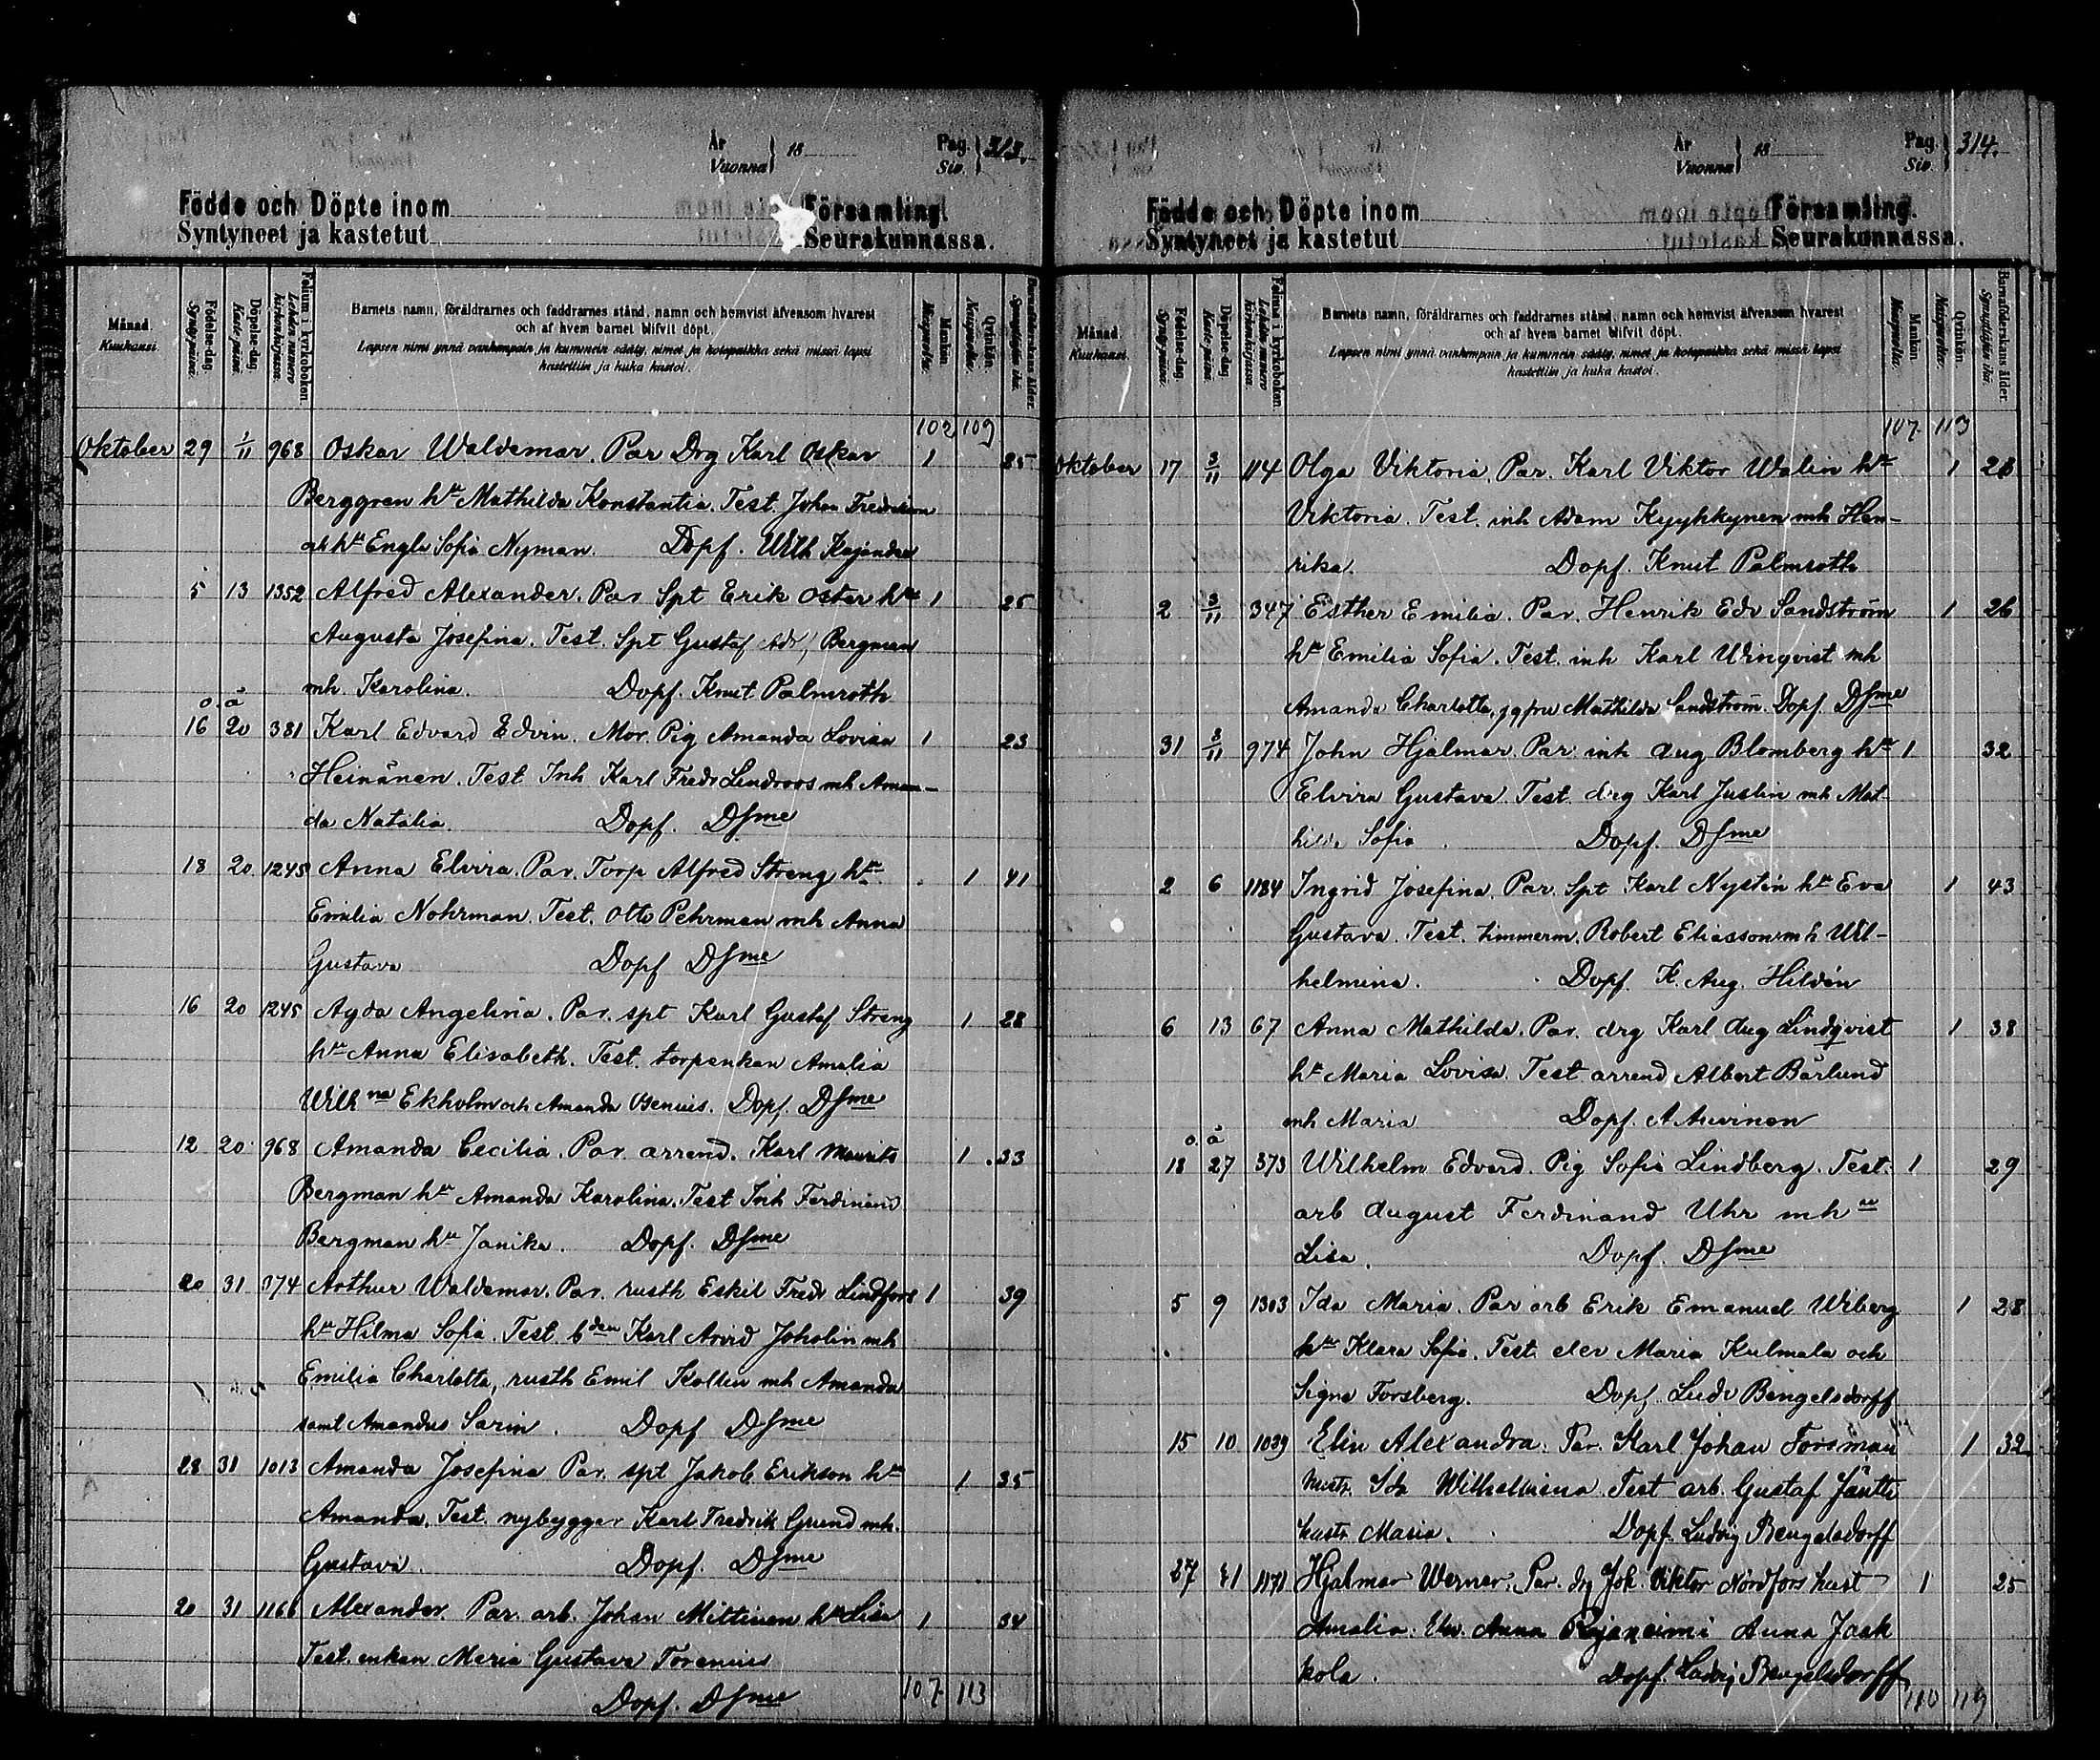 År Vuonna } 18
Pag. Siv. } 313.
Födde och Döpte inom Församling.
Syntyneet ja kastetut Seurakunnassa.
Månad. Kuukausi.
Födelse-dag. Synty-päivä.
Döpelse-dag. Kaste-päivä.
Folium i kyrkoboken. Lehden numero kirkonkirjassa.
Barnets namn, föräldrarnes och faddrarnes stånd, namn och hemvist äfvensom hvarest
och af hvem barnet blifvit döpt.
Lapsen nimi ynnä vanhempain ja kummein sääty, nimet ja kotopaikka sekä missä lapsi
kastettiin ja kuka kastoi.
Mankön. Miespuolta.
Qvinkön. Naispuolta.
Barnföderskans ålder. Synnyttäjän ikä.
102 109
Oktober 29 1/11 968 Oskar Waldemar. Par Drg Karl Oskar 1 25
Berggren hu Mathilda Konstantia. Test. Johan Fredrikson
och hu Engla Sofia Nyman. Döpf. Wilh Kajander
5 13 1352 Alfred Alexander. Par Spt Erik Öster hu 1 25
Augusta Josefina. Test. Spt Gustaf Adr, Bergman
mh. Karolina. Döpf. Knut Palmroth
o. ä
16 20 381 Karl Edvard Edvin. Mor. Pig Amanda Lovisa 1 23
Heinänen. Test Inh Karl Fredr Lindroos mh Aman-
da Natalia. Döpf. DSme
18 20 1245 Anna Elvira. Par. Torp Alfred Streng hu 1 41
Emilia Nohrman. Test. Otto Pehrman mh Anna
Gustava Döpf DSme
16 20 1245 Ayda Angelina. Par. spt Karl Gustaf Streng 1 28
hu Anna Elisabeth. Test. torpenkan Amalia
Wilhna Ekholm och Amanda Genius. Döpf. DSme
12 20 968 Amanda Cecilia. Par. arrend. Karl Maurits 1 33
Bergman hu Amanda Karolina. Test Inh Ferdinand
Bergman hu Janika. Döpf. DSme
20 31 374 Arthur Waldemar. Par. rusth Eskil Fredr Lindfors 1 39
hu Hilma Sofia. Test. bden Karl Arvid Joholin mh
Emilia Charlotta, rusth Emil Kollin mh Amanda
samt Amandus Sarin. Döpf DSme
28 31 1013 Amanda Josefina Par. spt Jakob Erikson hu 1 35
Amanda. Test. nybygger Karl Fredrik Grund mh.
Gustava. Döpf. DSme
20 31 1166 Alexander Par. arb. Johan Mittinen hu Lisa 1 34
Test. enkan Maria Gustava Torenius
Döpf. DSme 107 113
År Vuonna } 18
Pag. Siv. } 314.
Födde och Döpte inom Församling.
Syntyneet ja kastetut Seurakunnassa.
Månad. Kuukausi.
Födelse-dag. Synty-päivä.
Döpelse-dag. Kaste-päivä.
Folium i kyrkoboken. Lehden numero kirkonkirjassa.
Barnets namn, föräldrarnes och faddrarnes stånd, namn och hemvist äfvensom hvarest
och af hvem barnet blifvit döpt.
Lapsen nimi ynnä vanhempain ja kummein sääty, nimet ja kotopaikka sekä missä lapsi
kastettiin ja kuka kastoi.
Mankön. Miespuolta.
Qvinkön. Naispuolta.
Barnföderskans ålder. Synnyttäjän ikä.
107 113
Oktober 17 3/11 114 Olga Viktoria, Par. Karl Viktor Walin hu 1 28
Viktoria. Test. inh Adam Kyyhkynen mh Hen-
rika. Döpf. Knut Palmroth
2 3/11 347 Esther Emilia. Par. Henrik Edv Sandström 1 26
hu Emilia Sofia. Test. inh Karl Winqvist mh
Amanda Charlotta, jgfru Mathilda Sandström. Döpf. DSme
31 3/11 974 John Hjalmar. Par. inh Aug Blomberg hu 1 32
Elvira Gustava. Test. drg Karl Juslin mh Mat
hilda Sofia. Döpf. DSme
2 6 1184 Ingrid Josefina. Par. Spt Karl Nystén hu Eva 1 43
Gustava. Test. timmerm. Robert Eliasson mh Wil-
helmina. Döpf. K. Aug. Hildén
6 13 67 Anna Mathilda. Par. drg Karl Aug Lindqvist 1 38
hu Maria Lovisa. Test arrend Albert Bärlund
mh Maria Döpf. A Auvinen
o. ä
18 27 373 Wilhelm Edvard. Pig Sofia Lindberg. Test. 1 29
arb August Ferdinand Uhr mh
Lisa. Döpf. DSme
5 9 1303 Ida Maria. Par arb Erik Emanuel Wiberg 1 28
hu Klara Sofia. Test elev Maria Kulmala och
Signe Forsberg. Döpf. Ludv Bengelsdorff
15 10 1039 Elin Alexandra. Par. Karl Johan Forsman 1 32
hustr. Ida Wilhelmina. Test arb. Gustaf Jäntti
hustr Maria. Döpf. Ludvig Bengelsdorff
27 1171 Hjalmar Werner. Par. drg Joh. Viktor Nordfors hust 1 25
Amalia. Anna Anna Jaak
kola. Döpf. Ludvig Bengelsdorff
110 119